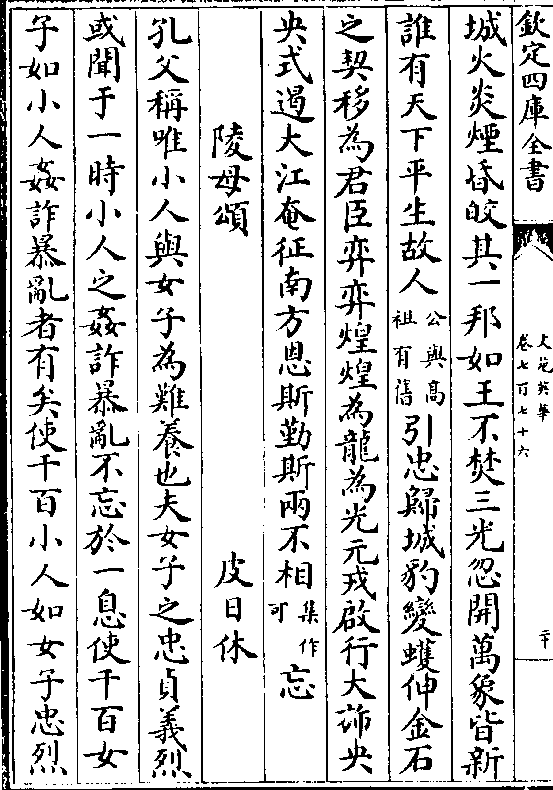 欽定四庫全書
文苑英華
卷七百七十六
二十
城火炎煙昏皎其一邦如王不焚三光忽開萬象皆新
誰有天下平生故人公與高祖有舊引忠歸城豹變蠖伸金石
之契移為君臣弈弈煌煌為龍為光元戎啟行大旆央
央式遏大江奄征南方恩斯勤斯兩不相集作可忘
陵母頌 皮日休
孔父稱唯小人與女子為難養也夫女子之忠貞義烈
或聞于一時小人之姦詐暴亂不忘於一息使千百女
子如小人姦詐暴亂者有矣使千百小人如女子忠烈